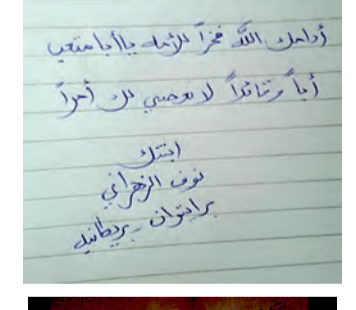 أدامك الله فخراً للأمة يا أبا متعب
أباً وقائداً لا نعصي لك أمراً
ابنتك
نوف الزهراني
برايتون - بريطانيا